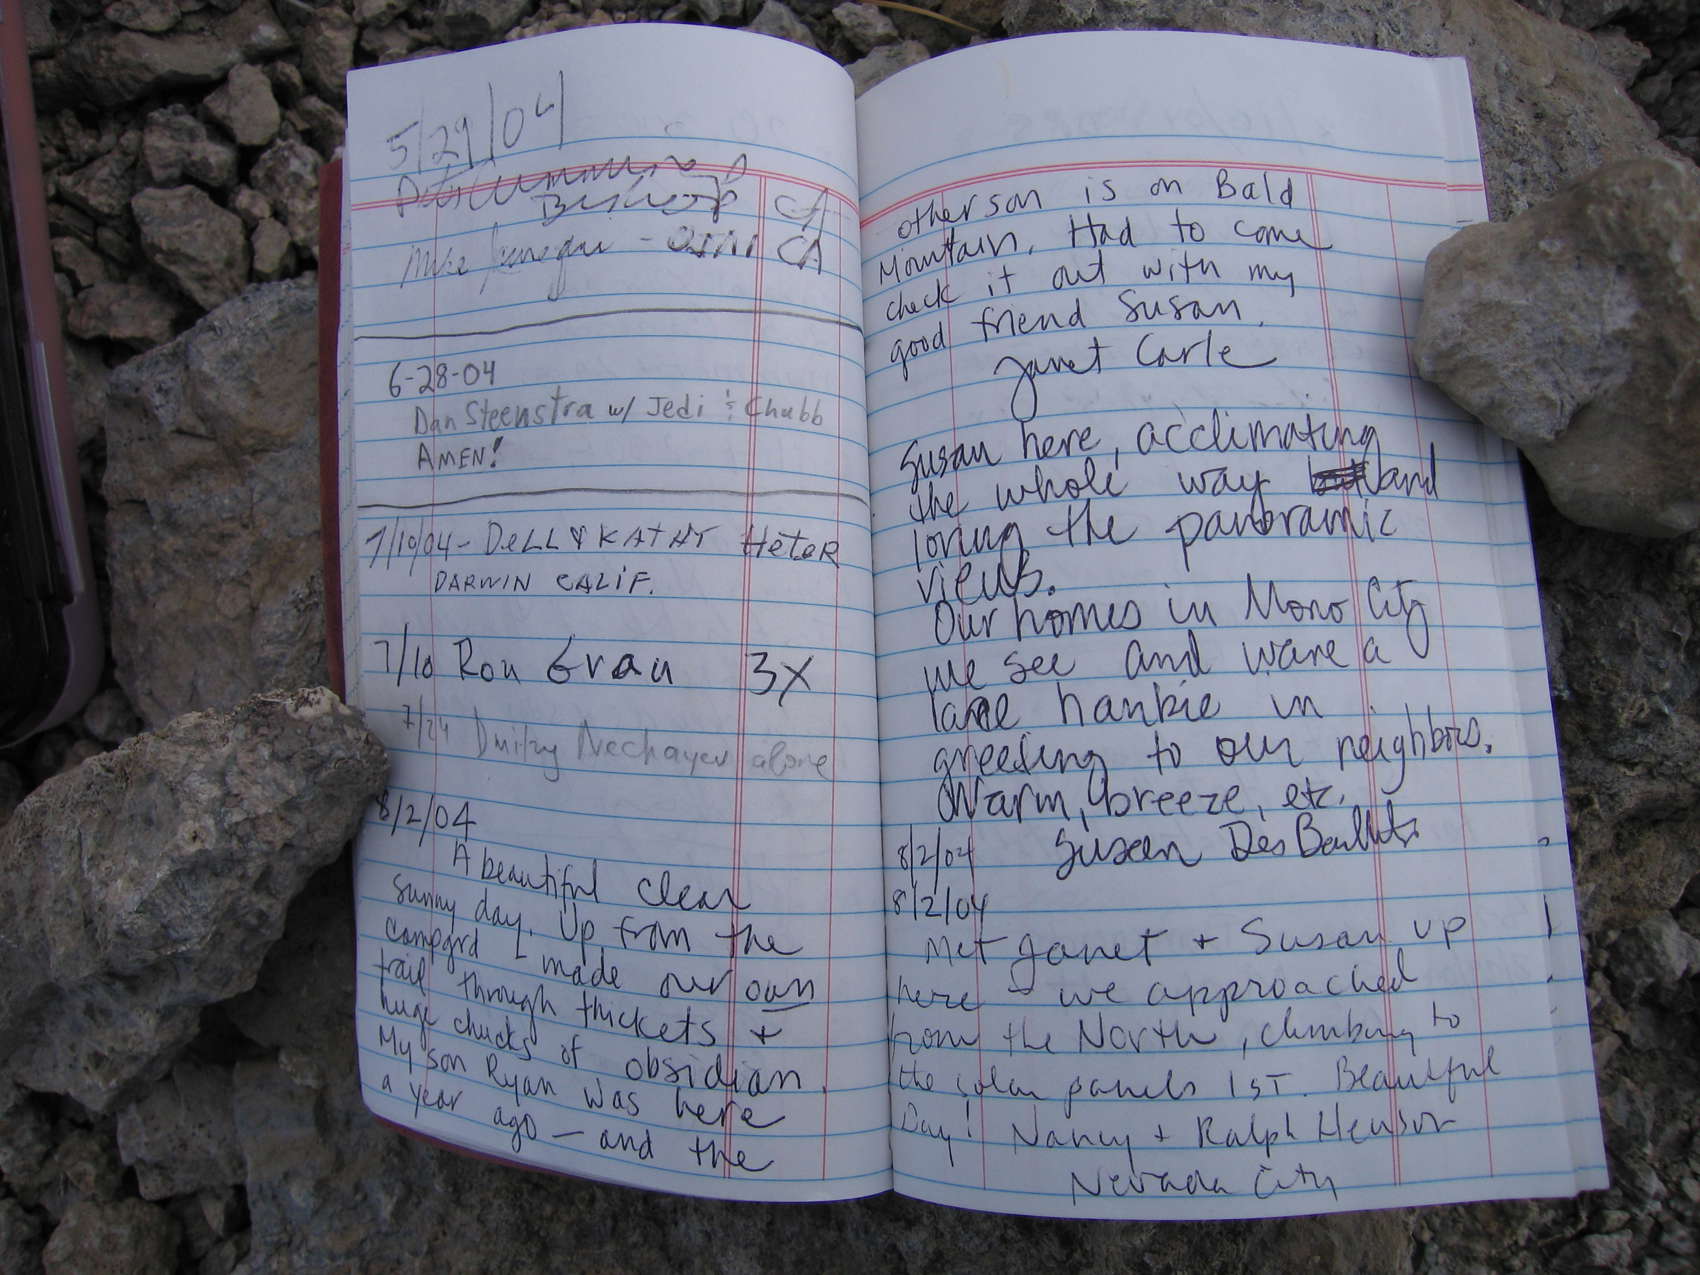 5/29/04
Dan Cummings
Bishop CA
Mike - OJAI CA
6-28-04
Dan Steenstra w/ Jedi & Chubb
AMEN!
7/10/04 - DELL & KATHY HeteR
DARWIN CALIF.
7/10 Ron Grau 3X
7/24 Dmitry Nechayev alone
8/2/04
A beautiful clear
sunny day. Up from the
campgrd I made our own
trail through thickets +
huge chucks of obsidian.
My son Ryan was here
a year ago — and the
other son is on Bald
Mountain. Had to come
check it out with my
good friend Susan.
Janet Carle
Susan here, acclimating
the whole way and
loving the panoramic
views.
Our homes in Mono City
we see and wave a
hankie in
greeting to our neighbors.
Warm, breeze, etc.
8/2/04 Susan
8/2/04
Met Janet + Susan up
here - we approached
from the North, climbing to
the solar panels 1ST. Beautiful
Day! Nancy + Ralph Henson
Nevada City